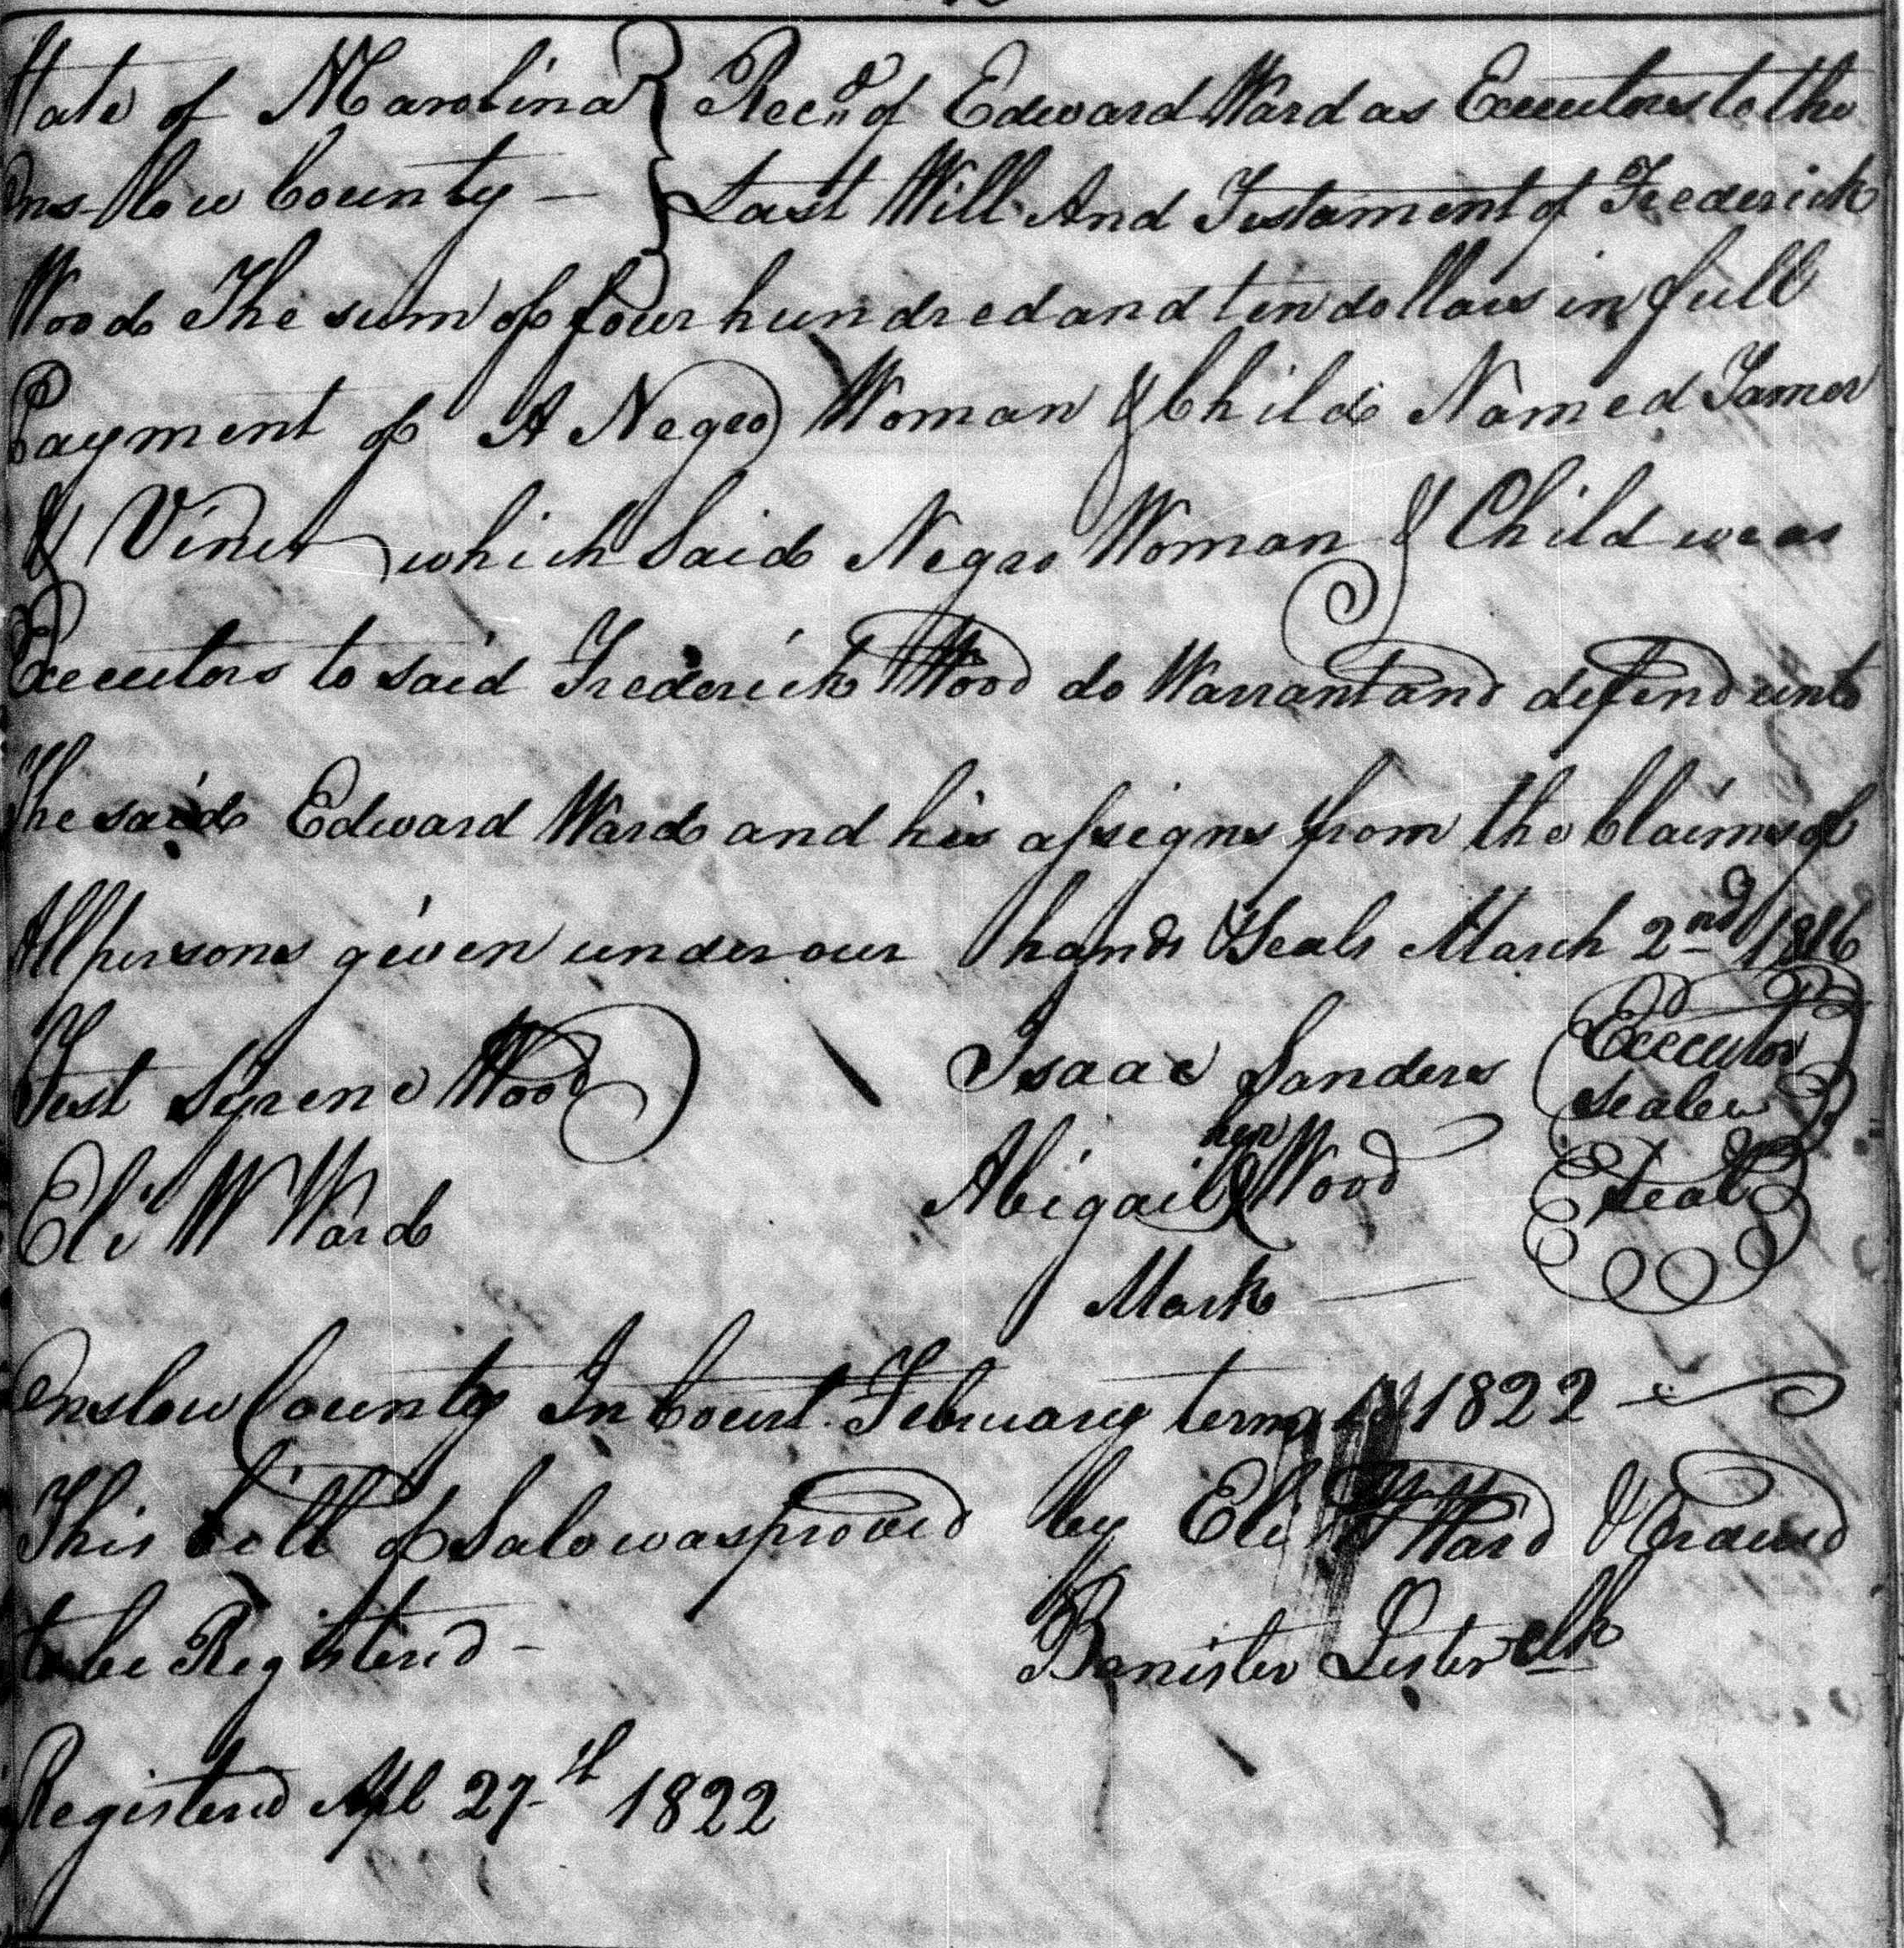 State of NCarolina } Recd of Edward Ward as Executors to the
Onslow County — } Last Will And Testament of Frederick
Wood The sum of four hundred and ten dollars in full
Payment of A Negro Woman & Child Named Tamer
& Viner which Said Negro Woman & Child we as
Executors to said Frederick Wood do Warrant and defend unto
The said Edward Ward and his assigns from the Claims of
All persons given under our hands & Seals March 2nd 1816
Test Wood Isaac Sanders Executor
seal
Eli W Ward Abigail her Wood Seal
Mark
Onslow County In Court February term 1822
This bill of Sale was proved by Eli W Ward & Ordered
to be Registered - Banister Lester Clk
Registered Apl 27th 1822